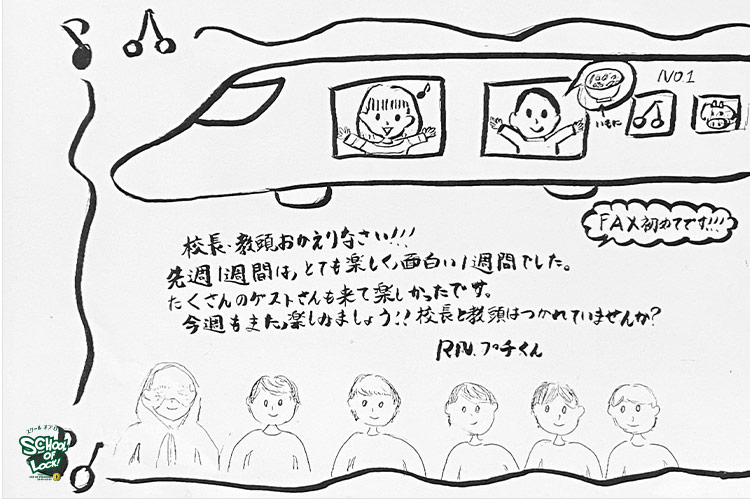 NO.1
いもに
FAX初めてです!!!
校長、教頭おかえりなさい!!!
先週1週間は、とても楽しく、面白い1週間でした。
たくさんのゲストさんも来て楽しかったです。
今週もまた、楽しみましょう!! 校長と教頭はつかれていませんか?
RN.プチくん
スクール オブ ロック
SCHOOL
OF
LOCK!